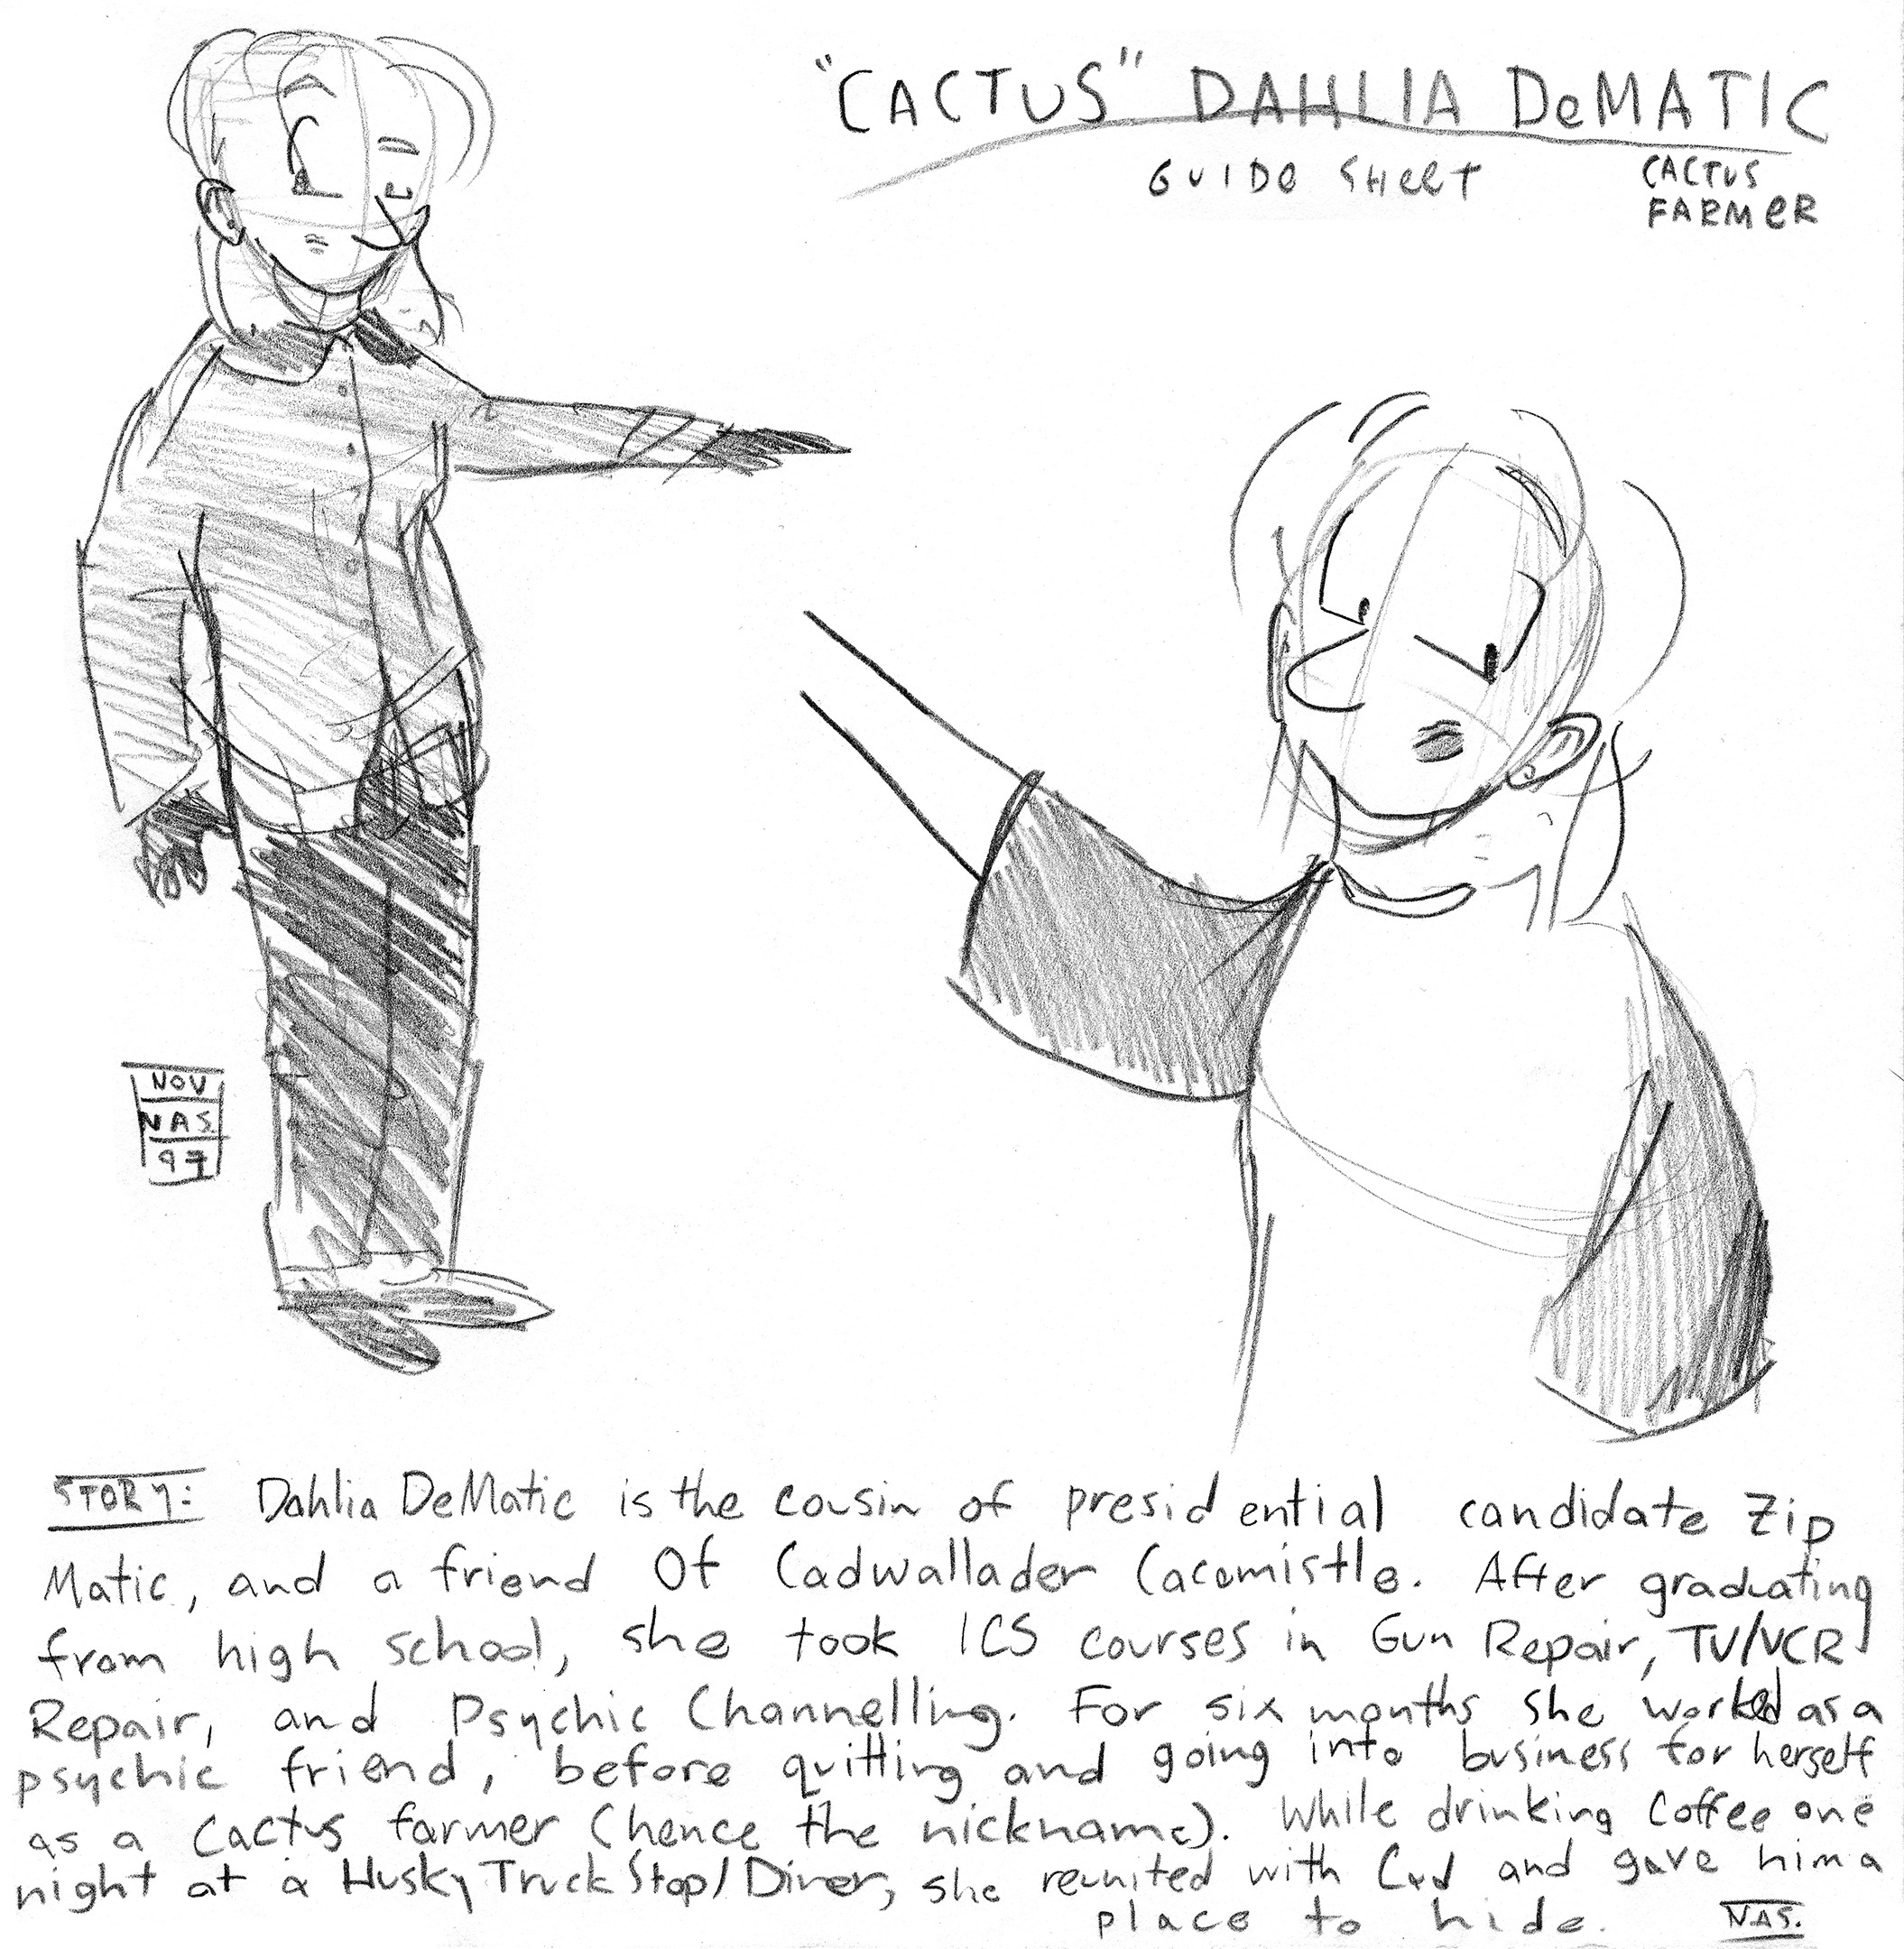 "CACTUS" DAHLIA DeMATIC
GUIDE SHEET
CACTUS
FARMER
NOV
NAS.
97
STORY: Dahlia DeMatic is the cousin of presidential candidate Zip
Matic, and a friend Of Cadwallader Cacomistle. After graduating
from high school, she took ICS courses in Gun Repair, TV/VCR
Repair, and Psychic Channelling. For six months she worked as a
psychic friend, before quitting and going into business for herself
as a Cactus farmer (hence the nickname). While drinking Coffee one
night at a Husky Truck Stop/Diner, she reunited with Cad and gave him a
place to hide. NAS.